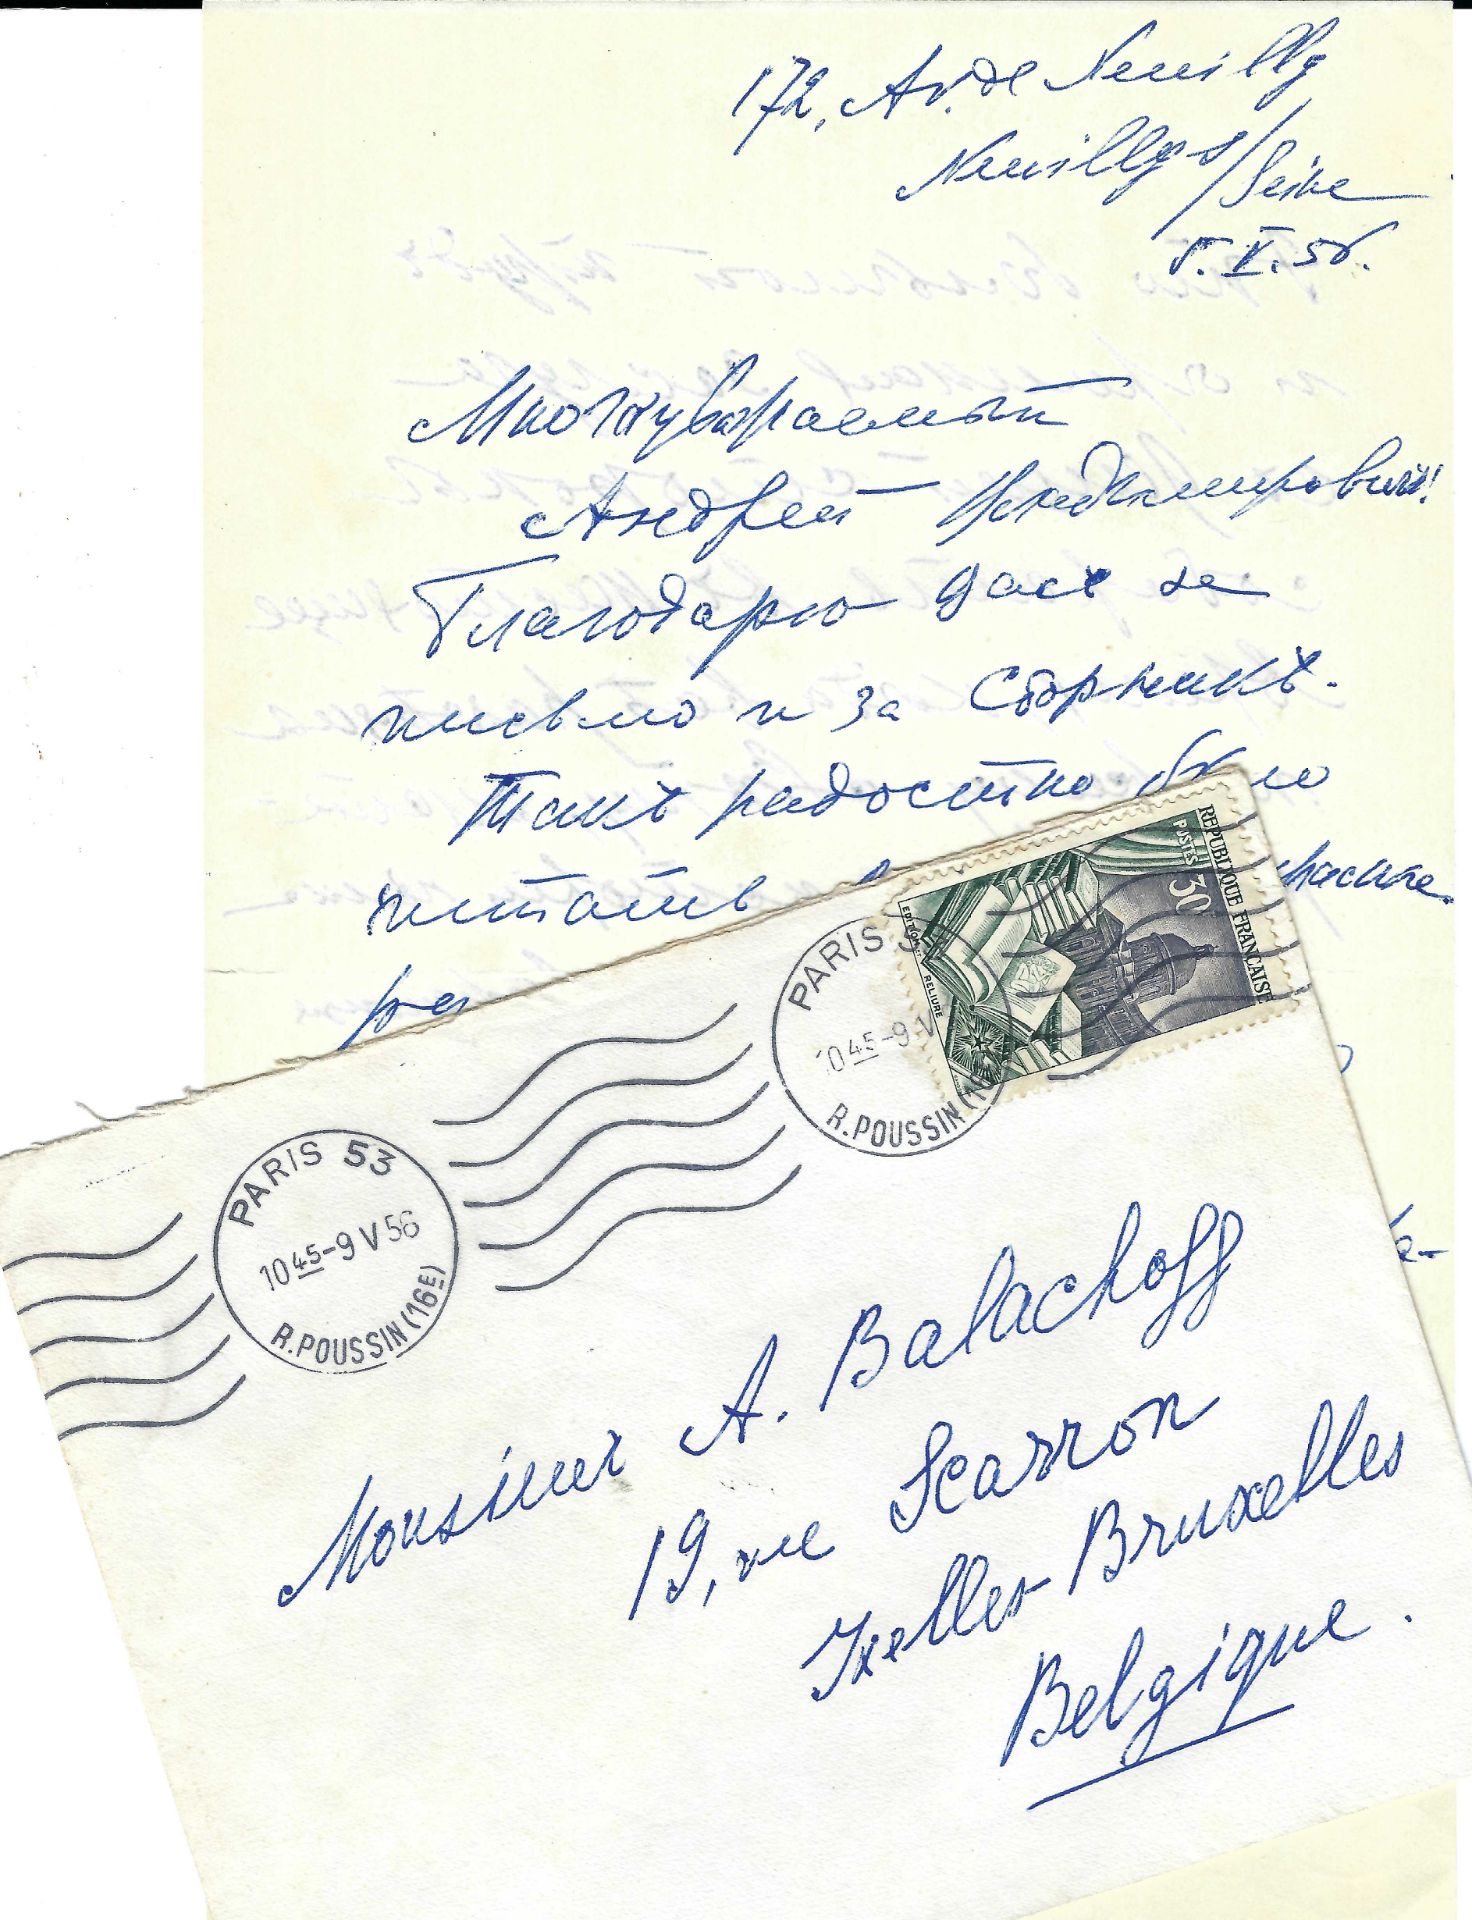 172, Av. de Neuilly
Neuilly s/Seine
5. V. 56.
Многоуважаемый
Андрей Владимирович!
Благодарю Вас за
письмо и за Сборникъ.
Такъ радостно было
читать
REPUBLIQUE FRANÇAISE
POSTES 30
EDITION ET RELIURE
PARIS 53
10 45 - 9 V
R. POUSSIN (16
PARIS 53
10 45 - 9 V 56
R. POUSSIN (16E)
Monsieur A. Balachoff
19, rue Scarron
Ixelles-Bruxelles
Belgique.